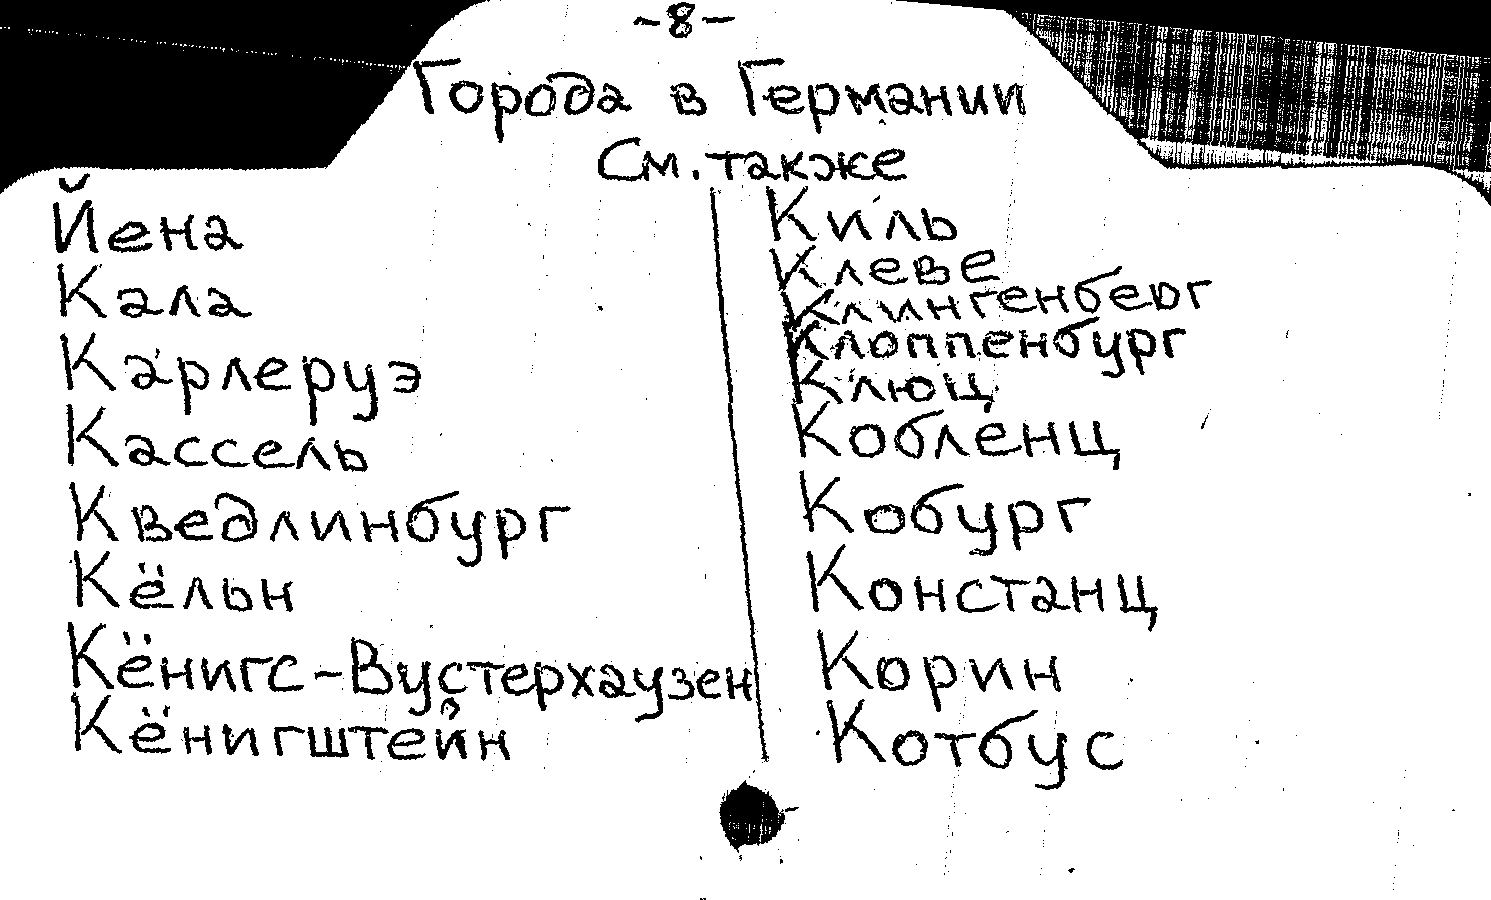 -8-
Города в Германии
См. также
Йена
Кала
Карлеруэ
Кассель
Кведлинбург
Кёльн
Кёнигс-Вустерхаузен
Кёнигштейн
Киль
Клеве
Клингенберг
Клоппенбург
Клюц
Кобленц
Кобург
Констанц
Корин
Котбус